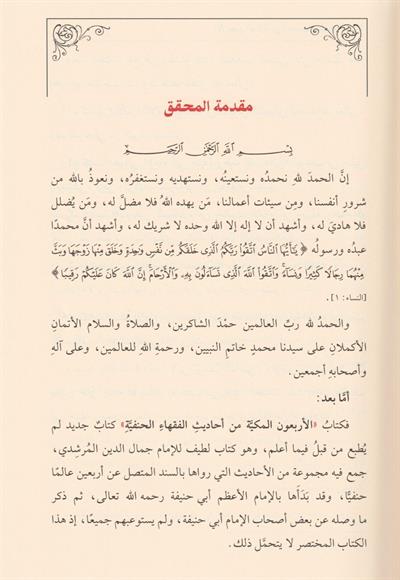 مقدمة المحقق
بِسْمِ اللَّهِ الرَّحْمَٰنِ الرَّحِيمِ
إنَّ الحمدَ للهِ نحمدُه ونستعينُه، ونستهديه ونستغفرُه، ونعوذُ بالله من
شرورِ أنفسنا، ومِن سيئات أعمالنا، مَن يهده اللهُ فلا مضلَّ له، ومَن يُضلل
فلا هاديَ له، وأشهد أن لا إله إلا الله وحده لا شريك له، وأشهد أن محمدًا
عبدُه ورسولُه ﴿ يَٰٓأَيُّهَا ٱلنَّاسُ ٱتَّقُوا۟ رَبَّكُمُ ٱلَّذِى خَلَقَكُم مِّن نَّفْسٍ وَٰحِدَةٍ وَخَلَقَ مِنْهَا زَوْجَهَا وَبَثَّ
مِنْهُمَا رِجَالًا كَثِيرًا وَنِسَآءً ۚ وَٱتَّقُوا۟ ٱللَّهَ ٱلَّذِى تَسَآءَلُونَ بِهِۦ وَٱلْأَرْحَامَ ۚ إِنَّ ٱللَّهَ كَانَ عَلَيْكُمْ رَقِيبًا ﴾
[النساء: ١].
والحمدُ لله ربِّ العالمين حمْدَ الشاكرين، والصلاةُ والسلام الأتمانِ
الأكملانِ على سيدنا محمدٍ خاتمِ النبيين، ورحمةِ اللهِ للعالمين، وعلى آلهِ
وأصحابهِ أجمعين.
أمَّا بعد:
فكتابُ «الأربعون المكيّة من أحاديثِ الفقهاءِ الحنفيَّةِ» كتابٌ جديد لم
يُطبع من قبلُ فيما أعلم، وهو كتاب لطيف للإمام جمال الدين المُرشِدي،
جمع فيه مجموعة من الأحاديث التي رواها بالسند المتصل عن أربعين عالمًا
حنفيًّا، وقد بَدَأَها بالإمام الأعظم أبي حنيفة رحمه الله تعالى، ثم ذكر
ما وصله عن بعض أصحاب الإمام أبي حنيفة، ولم يستوعبهم جميعًا، إذ هذا
الكتاب المختصر لا يتحمَّل ذلك.